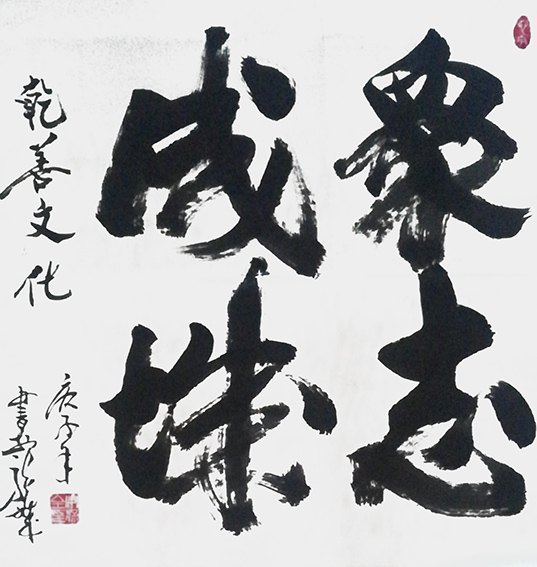 眾志
成城
乾善文化
庚子年
書